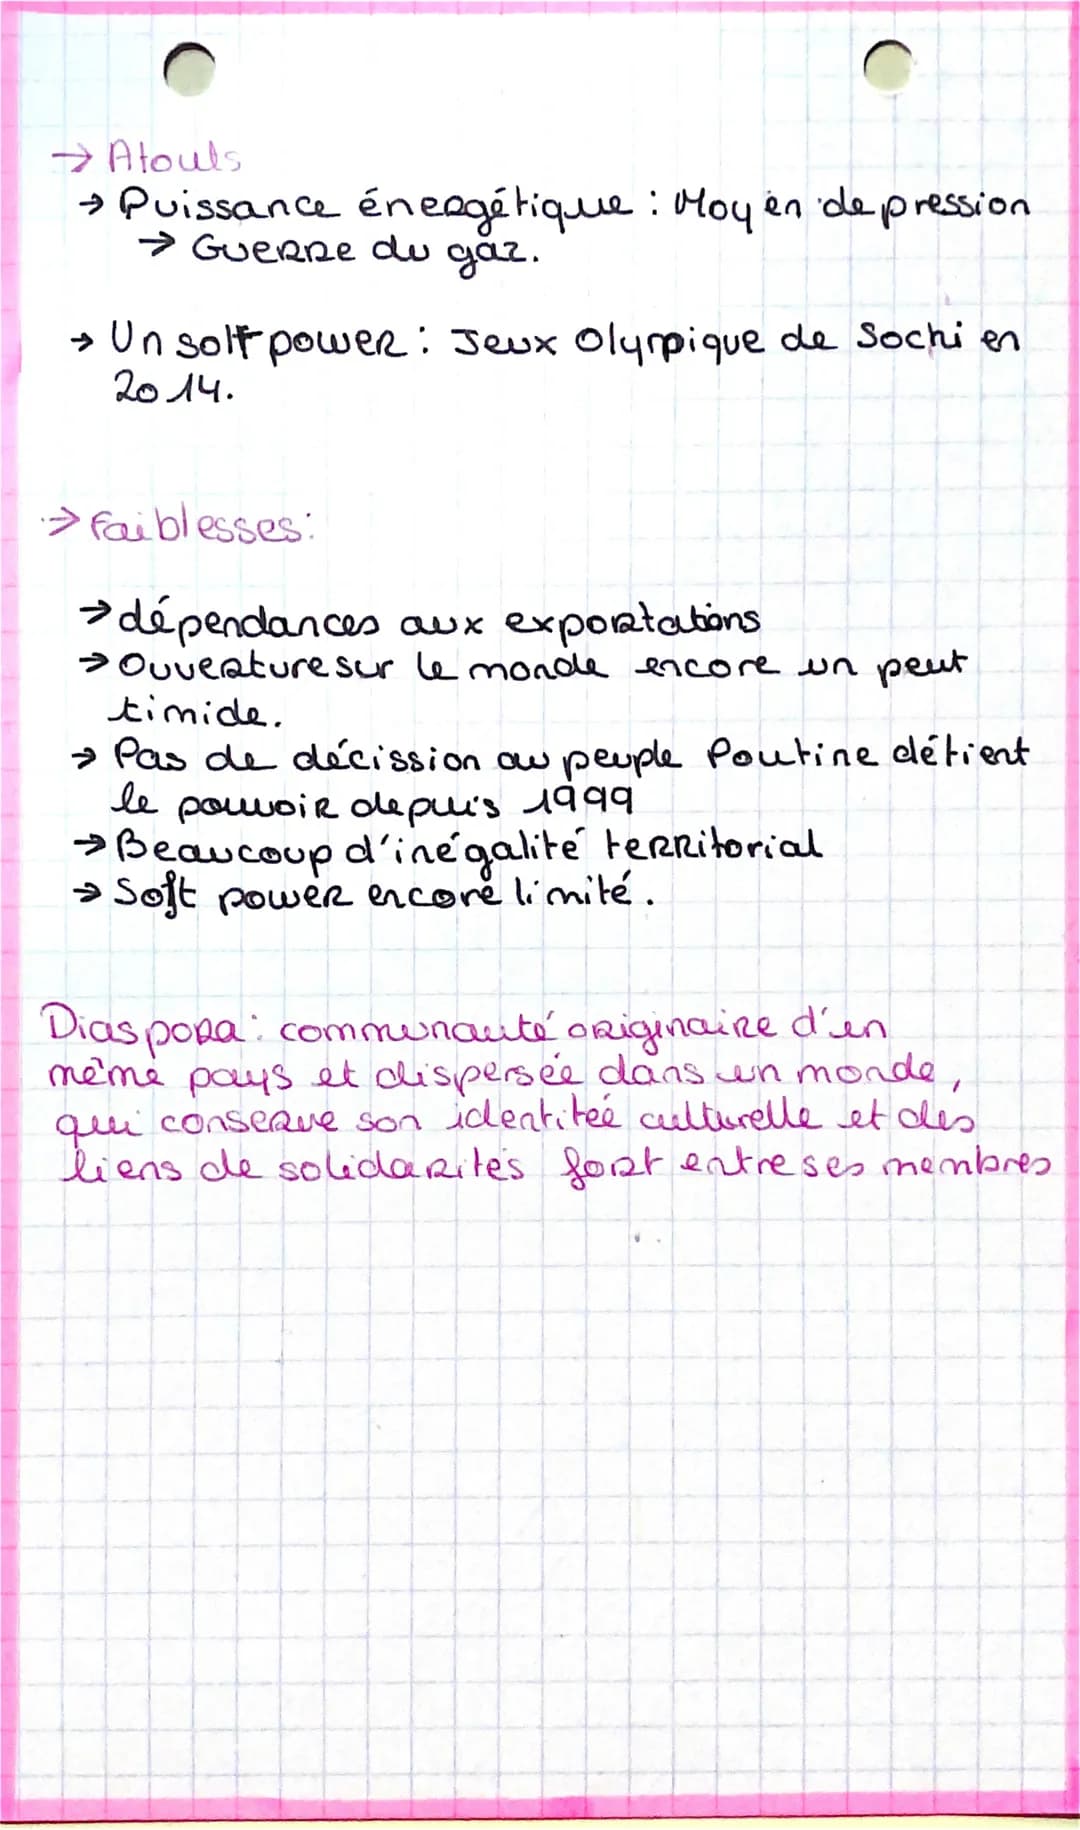 → Atouts
→ Puissance énergétique : Moyen de pression
→ Guerre du gaz.
→ Un soft power : Jeux Olympique de Sochi en
2014.
→ Faiblesses :
→ dépendances aux exportations
→ Ouverture sur le monde encore un peut
timide.
→ Pas de décission au peuple Poutine détient
le pouvoir depuis 1999
→ Beaucoup d'inégalité territorial
→ Soft power encore limité.
Diaspora : communauté originaire d'un
même pays et dispersée dans un monde,
qui conserve son identiteé culturelle et des
liens de solidarités fort entre ses membres